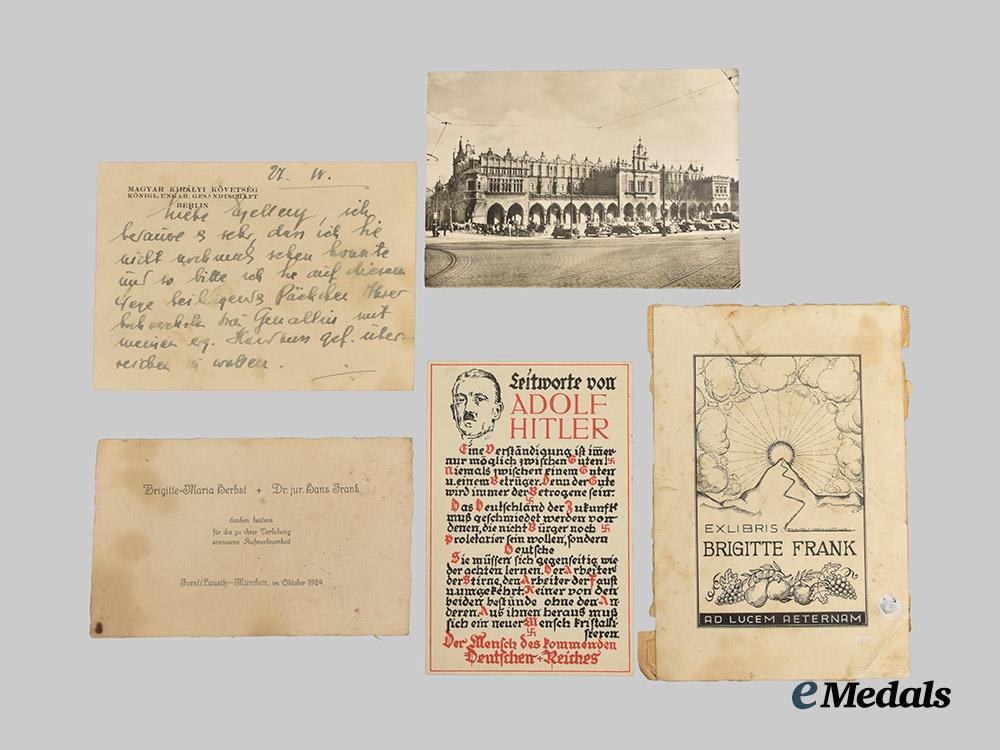 27. IV.
MAGYAR KIRÁLYI KÖVETSÉG
KÖNIGL. UNGAR. GESANDTSCHAFT
BERLIN
ich
bedaure es sehr, dass ich Sie
nicht nochmals sehen konnte
und so bitte ich Sie auf diesem
Wege beiliegendes Päckchen Ihrer
Frau Gemahlin mit
meinen erg. Handkuss gef. über-
reichen zu wollen.
Brigitte-Maria Herbst + Dr. jur. Hans Frank
danken bestens
für die zu ihrer Verlobung
erwiesene Aufmerksamkeit
Forst/Lausitz—München, im Oktober 1924
Leitworte von
ADOLF
HITLER
Eine Verständigung ist immer
nur möglich zwischen Guten!
Niemals zwischen einem Guten
u. einem Betrüger. Denn der Gute
wird immer der Betrogene sein.
Das Deutschland der Zukunft
muß geschmiedet werden von
denen, die nicht Bürger noch
Proletarier sein wollen, sondern
Deutsche
Sie müssen sich gegenseitig wie
der achten lernen. Der Arbeiter
der Stirne den Arbeiter der Faust
u. umgekehrt. Keiner von den
beiden bestünde ohne den An-
deren. Aus ihnen heraus muß
sich ein neuer Mensch kristalli-
sieren.
Der Mensch des kommenden
Deutschen + Reiches
EXLIBRIS
BRIGITTE FRANK
AD LUCEM AETERNAM
eMedals